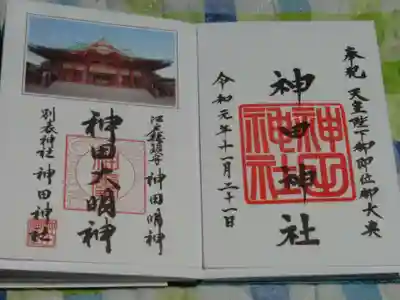 奉祝 天皇陛下御即位御大典
神田神社
令和元年十一月二十一日
神田神社
江戸総鎮守 神田明神
神田大明神
別表神社 神田神社